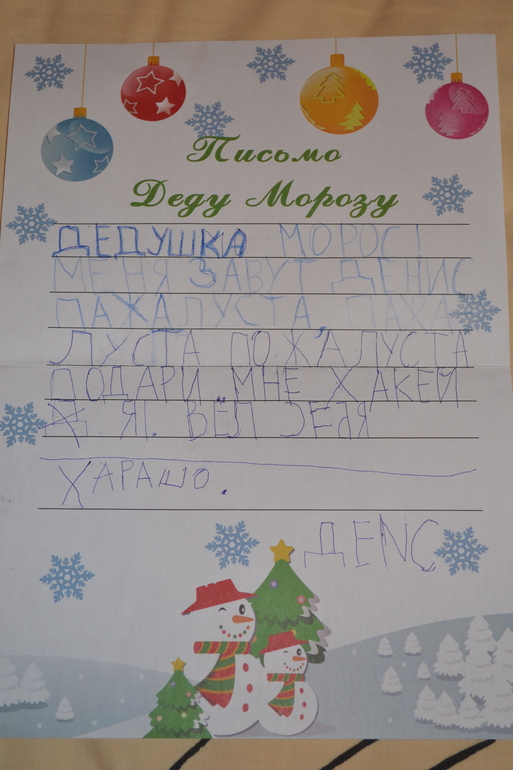 Письмо
Деду Морозу
ДЕДУШКА МОРОС!
МЕНЯ ЗАВУТ ДЕНИС
ПАЖАЛУСТА ПАЖА
ЛУСТА ПОЖАЛУСТА
ПОДАРИ МНЕ ХАКЕЙ
Я. ВЁЛ СЕБЯ
ХАРАШО.
ДЕNС